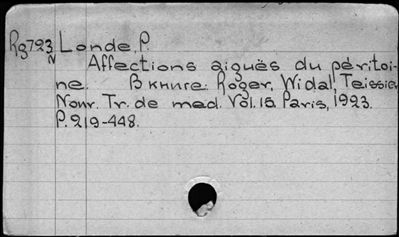 Rg723 Londe, P.
N
Affections aiguës du péritoi-
ne. В книге: Roger, Widal, Teissier
Nouv. Tr. de med. Vol. 15. Paris, 1923.
P. 219-448.